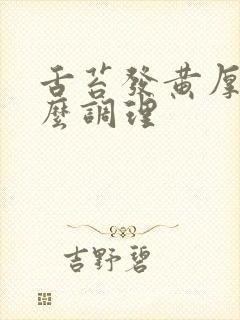 舌苔發黃厚
麼調理
吉野碧